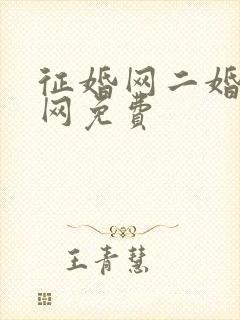 征婚网二婚
网免费
王青慧